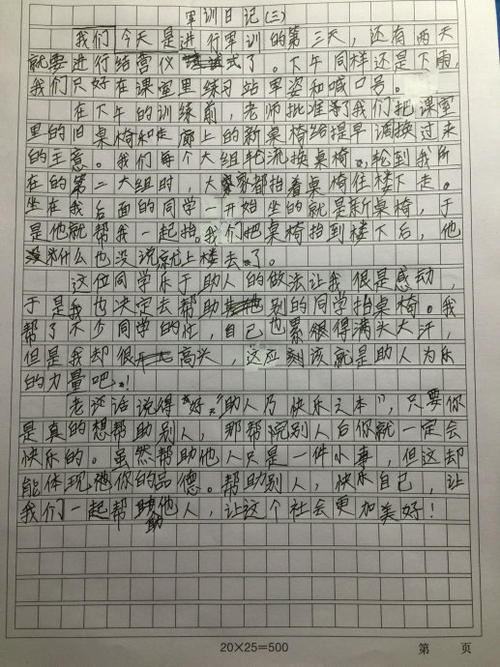 军训日记(三)
我们今天是进行军训的第三天，还有两天
就要进行结营仪式了。下午同样还是下雨，
我们只好在课室里练习站军姿和喊口号。
在下午的训练前，老师批准了我们把课室
里的旧桌椅和走廊上的新桌椅给提早调换过来
的主意。我们每个大组轮流换桌椅，轮到我所
在的第二大组时，大家都抬着桌椅往楼下走。
坐在我后面的同学一开始坐的就是新桌椅，于
是他就帮我一起抬。我们把桌椅抬到楼下后，他
没什么也没说就上楼去了。
这位同学乐于助人的做法让我很是感动，
于是我也决定去帮助别的同学抬桌椅。我
帮了不少同学的忙，自己也累得满头大汗，
但是我却很高兴，这应该就是助人为乐
的力量吧！
老话说得好“助人乃快乐之本”，只要你
是真的想帮助别人，那帮完别人后你就一定会
快乐的。虽然帮助他人只是一件小事，但这却
能体现你的品德。帮助别人，快乐自己，让
我们一起帮助他人，让这个社会更加美好！
20×25=500
第 页